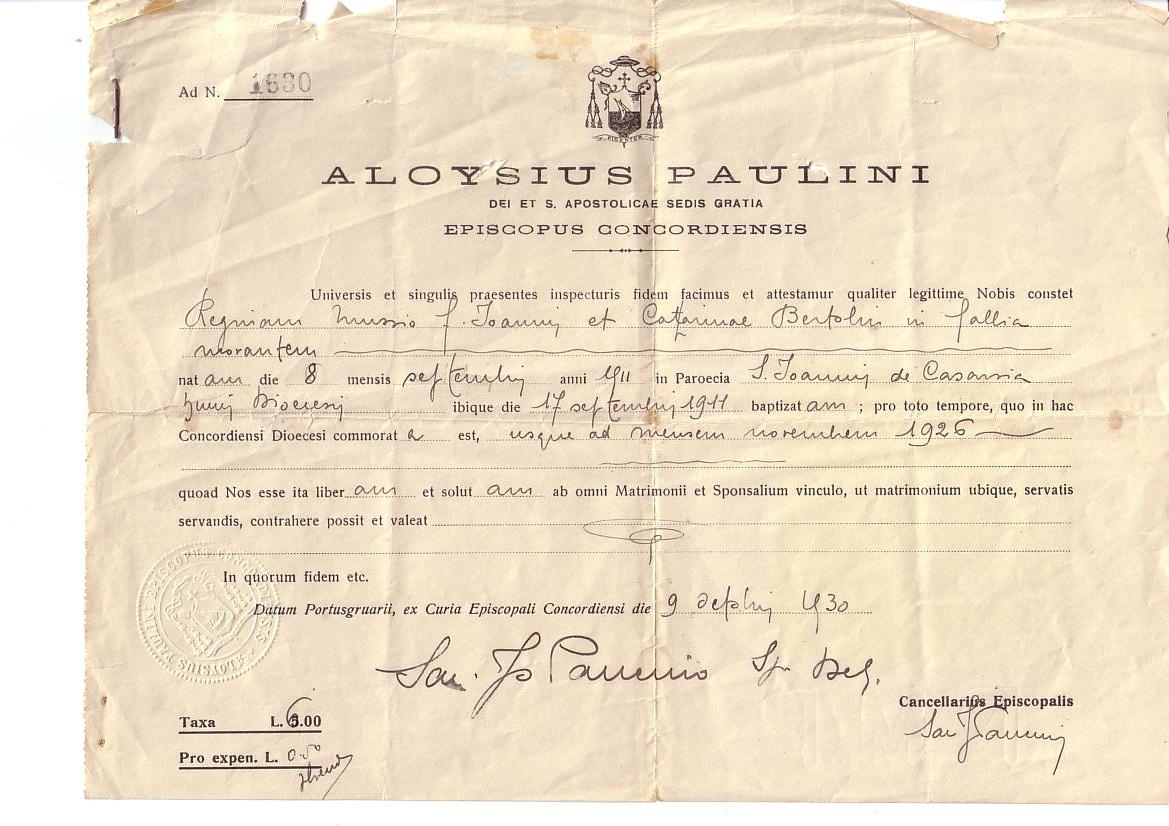 Ad N. 1630
ALOYSIUS PAULINI
DEI ET S. APOSTOLICAE SEDIS GRATIA
EPISCOPUS CONCORDIENSIS
Universis et singulis praesentes inspecturis fidem facimus et attestamur qualiter legittime Nobis constet
f. Joannis et Catharinae Bertolin in Gallia
morantem
natam die 8 mensis septembris anni 1911 in Paroecia S. Joannis de Casarsa
hujus Dioecesis ibique die 17 septembris 1911 baptizatam ; pro toto tempore, quo in hac
Concordiensi Dioecesi commorata est, usque ad mensem novembrem 1926
quoad Nos esse ita liberam et solutam ab omni Matrimonii et Sponsalium vinculo, ut matrimonium ubique, servatis
servandis, contrahere possit et valeat
In quorum fidem etc.
Datum Portusgruarii, ex Curia Episcopali Concordiensi die 9 1930
Sac.
Del.
Cancellarius Episcopalis
Sac.
Taxa L. 6.00
Pro expen. L. 0.50
ALOYSIUS PAULINI EPISCOPUS CONCORDIENSIS